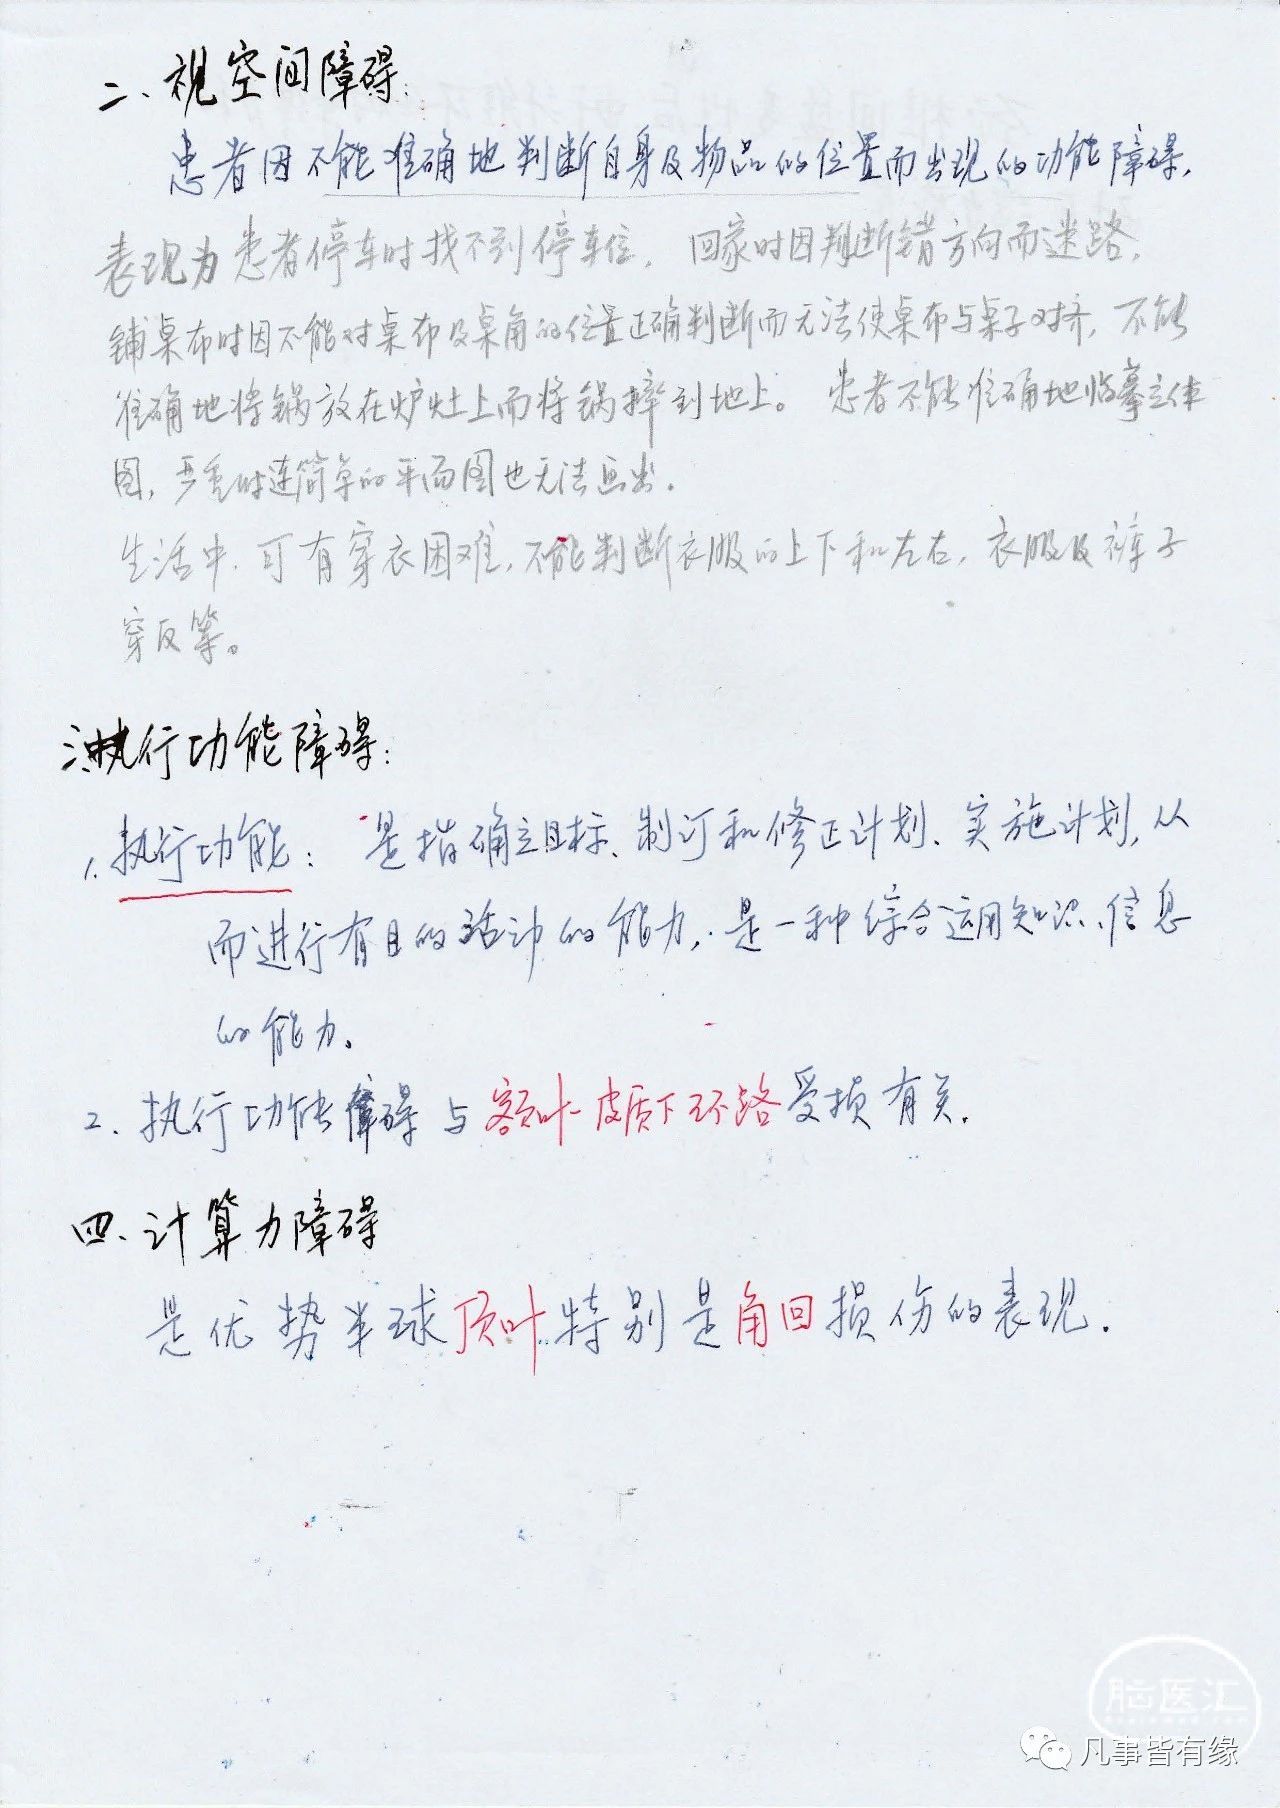 二、视空间障碍:
患者因不能准确地判断自身及物品的位置而出现的功能障碍,
表现为患者停车时找不到停车位, 回家时因判断错方向而迷路,
铺桌布时因不能对桌布及桌角的位置正确判断而无法使桌布与桌子对齐, 不能
准确地将锅放在炉灶上而将锅摔到地上。 患者不能准确地临摹立体
图, 严重时连简单的平面图也无法画出.
生活中, 可有穿衣困难, 不能判断衣服的上下和左右, 衣服及裤子
穿反等。
三、执行功能障碍:
1. 执行功能: 是指确立目标、制订和修正计划、实施计划, 从
而进行有目的活动的能力, 是一种综合运用知识、信息
的能力.
2. 执行功能障碍与额叶-皮质下环路受损有关.
四、计算力障碍
是优势半球顶叶特别是角回损伤的表现.
脑医汇
凡事皆有缘